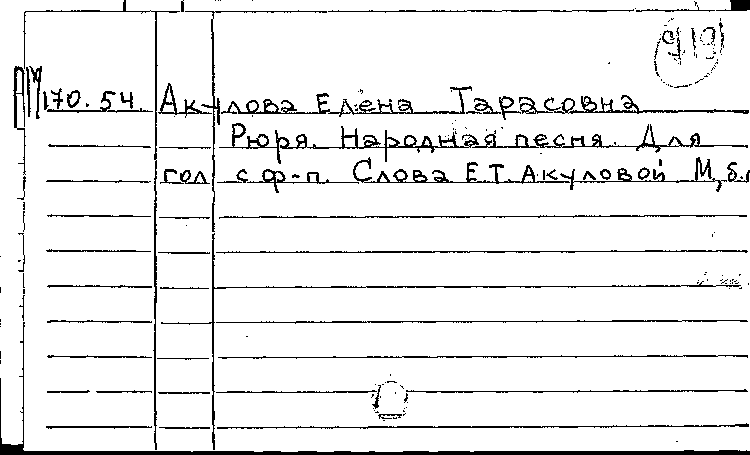 919
ПМ 170.54. Акулова Елена Тарасовна
Рюря. Народная песня. Для
гол с ф-п. Слова Е.Т. Акуловой М, б.г